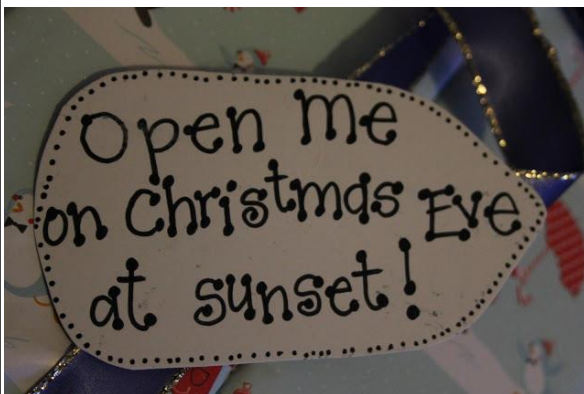 Open me
on Christmas Eve
at sunset!